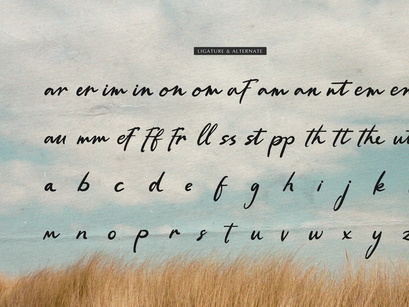 LIGATURE & ALTERNATE
ar er im in on om af am an nt em er
au mm ef ff fr ll ss st pp th tt the
a b c d e f g h i j k
m n o p r s t u v w x y z